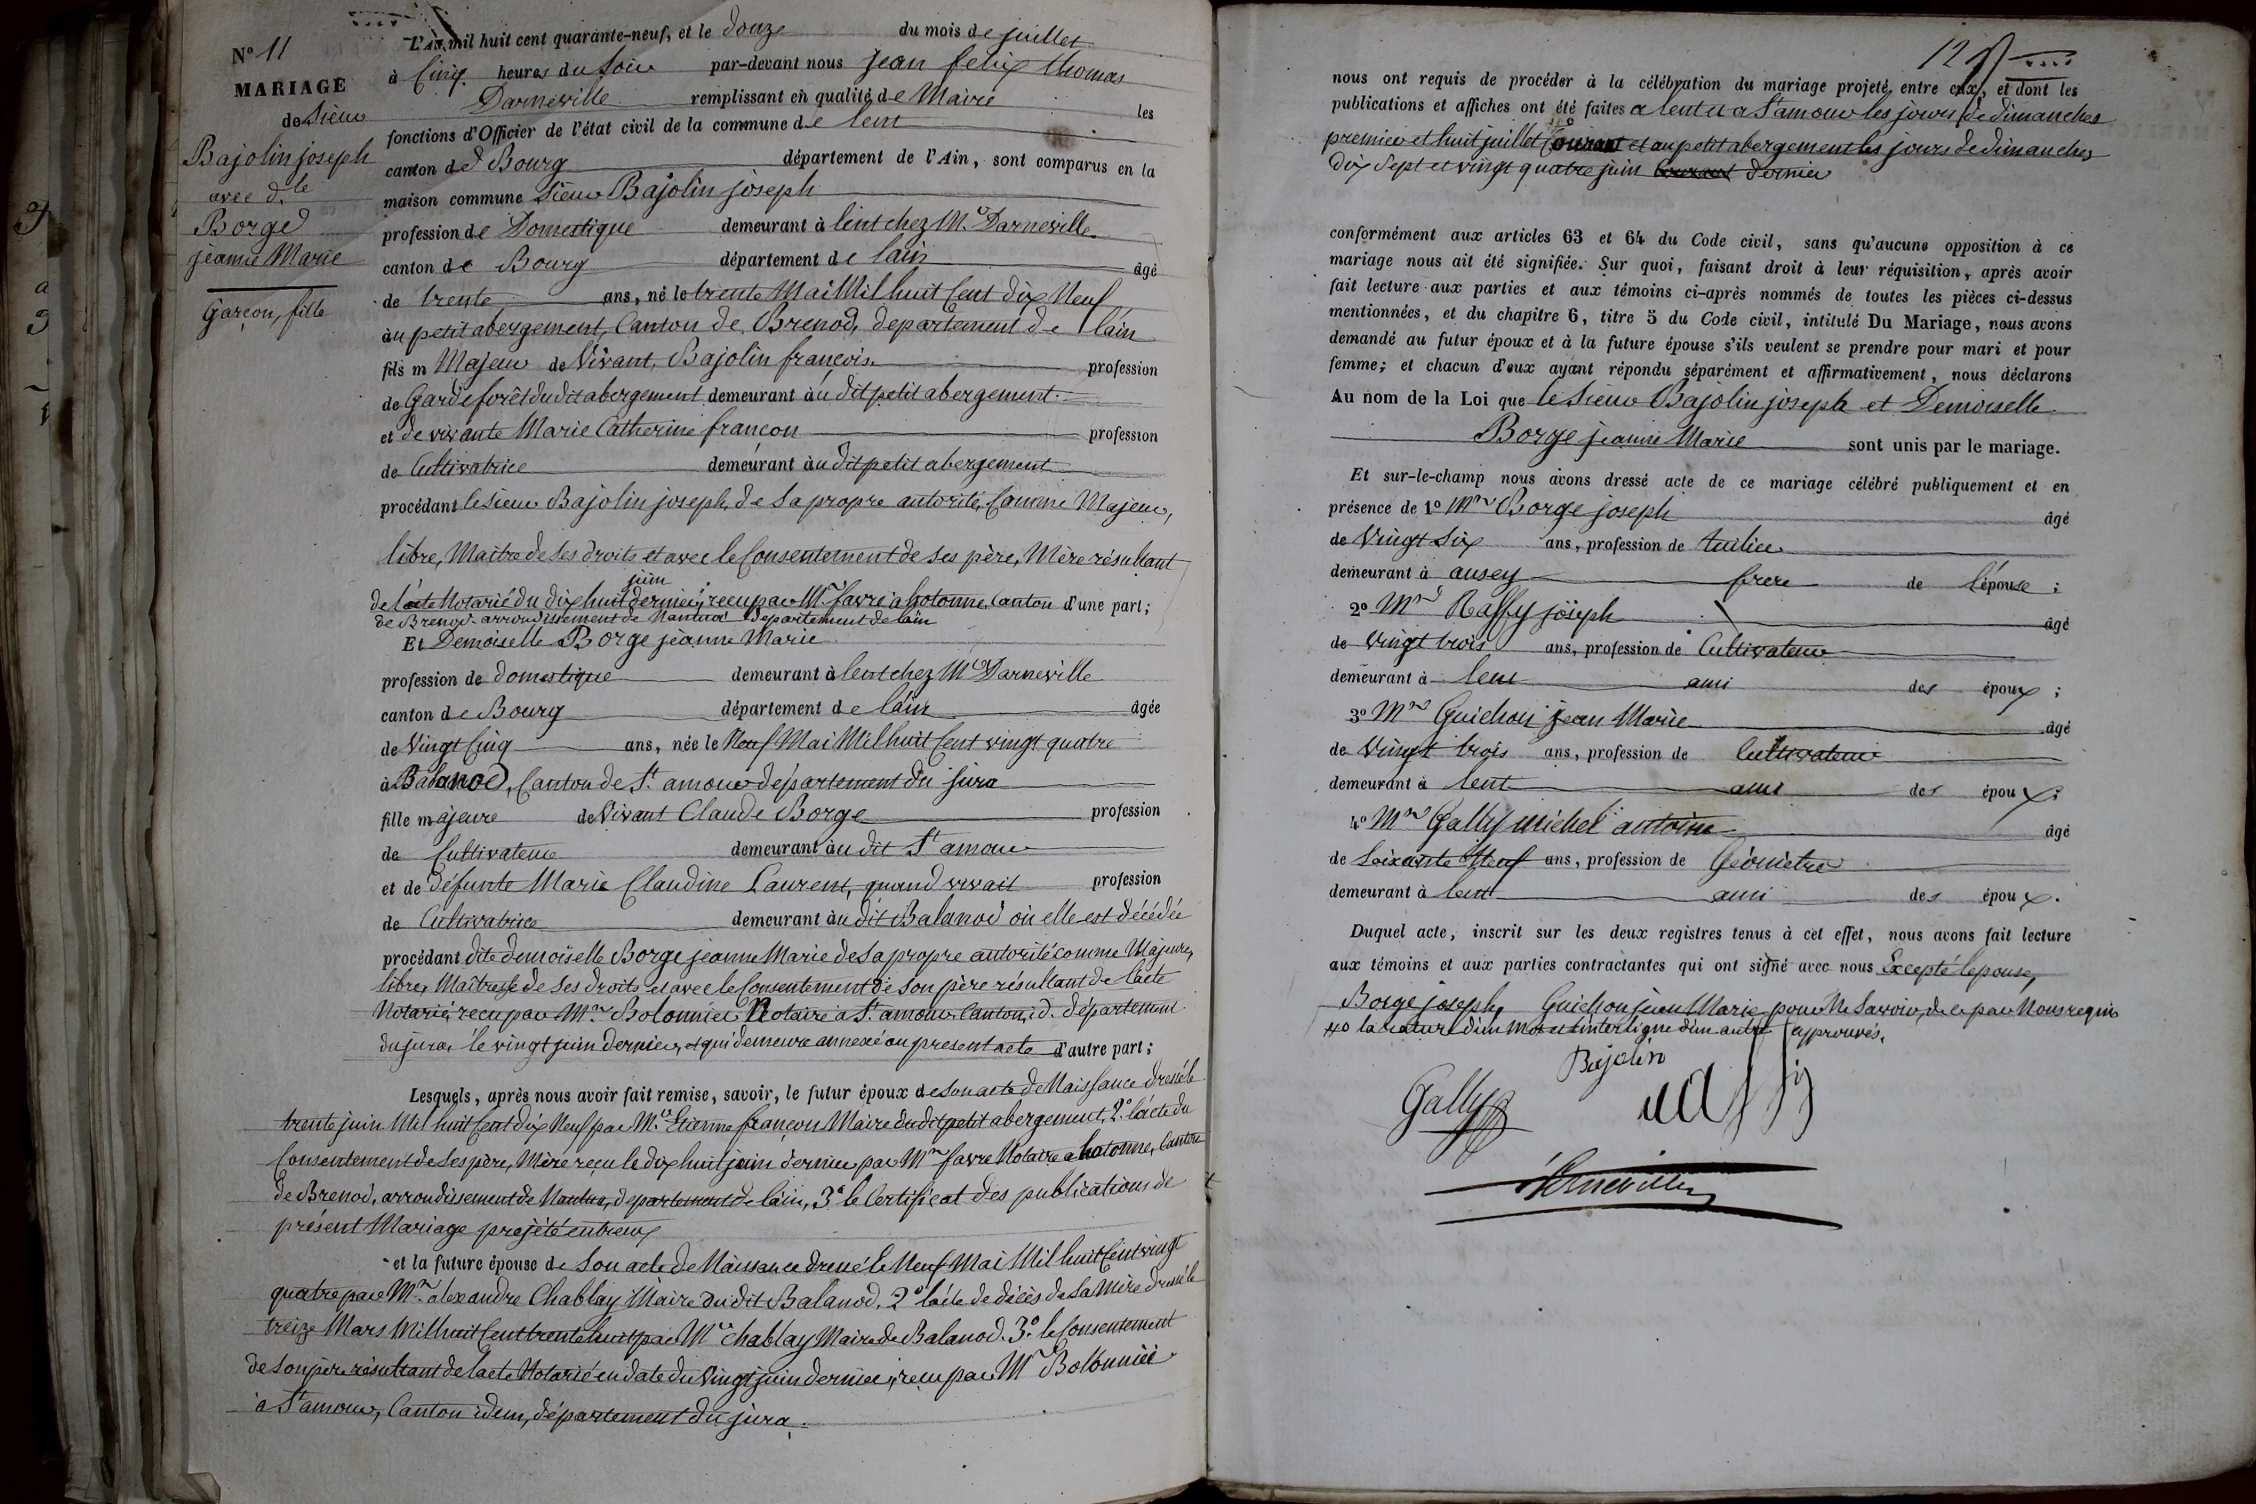 N° 11
MARIAGE
de Sieur
Bajolin joseph
avec d.le
Borge
jeanne Marie
Garçon, fille
L'AN mil huit cent quarante-neuf, et le douze du mois de juillet
à Cinq heures du Soir par-devant nous jean felix thomas
Darneville remplissant en qualité de Maire les
fonctions d'Officier de l'état civil de la commune de lent
canton de Bourg département de l'Ain, sont comparus en la
maison commune Sieur Bajolin joseph
profession de Domestique demeurant à lent chez Mr Darneville
canton de Bourg département de lain âgé
de trente ans, né le trente Mai Mil huit Cent dix Neuf
au petit abergement, Canton de Brenod, departement de lain
fils m Majeur de Vivant, Bajolin françois profession
de Garde forêt du dit abergement demeurant au dit petit abergement
et de vivante Marie Catherine françon profession
de Cultivatrice demeurant au dit petit abergement
procédant le sieur Bajolin joseph, de Sa propre autorité, Comme Majeur,
libre, Maître de Ses droits et avec le Consentement de Ses père, Mère résultant
de l'acte Notarié du dix huit juin dernier, reçu par Mr favre à hotonne, Canton d'une part;
de Brenod arrondissement de Nantua département de lain
Et Demoiselle Borge jeanne Marie
profession de domestique demeurant à lent chez Mr Darneville
canton de Bourg département de lain âgée
de Vingt Cinq ans, née le Neuf Mai Mil huit Cent vingt quatre
à Balanod, Canton de St amour département du jura
fille majeure de Vivant Claude Borge profession
de Cultivateur demeurant au dit St amour
et de défunte Marie Claudine Laurent, quand vivait profession
de Cultivatrice demeurant au dit Balanod où elle est décédée
procédant dite demoiselle Borge jeanne Marie de Sa propre autorité comme Majeure,
libre, Maîtresse de Ses droits et avec le Consentement de Son père résultant de l'acte
Notarié, reçu par Mr Bolonnier Notaire à St amour Canton, id. département
du jura, le vingt juin dernier, et qui demeure annexé au présent acte d'autre part;
Lesquels, après nous avoir fait remise, savoir, le futur époux de Son acte de Naissance dressé le
trente juin Mil huit Cent dix Neuf par Mr Etienne françon Maire du dit petit abergement, 2° l'acte du
Consentement de Ses père, Mère reçu le dix huit juin dernier par Mr favre Notaire a hotonne, Canton
de Brenod, arrondissement de Nantua, departement de lain, 3° le Certificat des publications de
présent Mariage projété entreux
et la future épouse de Son acte de Naissance dressé le Neuf Mai Mil huit Cent vingt
quatre par Mr alexandre Chablay Maire du dit Balanod, 2° l'acte de décès de Sa Mère dressé le
treize Mars Mil huit Cent trente huit par Mr Chablay Maire de Balanod. 3° le Consentement
de Son père résultant de l'acte Notarié en date du Vingt juin dernier, reçu par Mr Bolonnier
à St amour, Canton idem, département du jura.
12
nous ont requis de procéder à la célébration du mariage projeté entre eux, et dont les
publications et affiches ont été faites a lent et a St amour les jours de dimanches
premier et huit juillet Courant et au petit abergement les jours de dimanches
dix Sept et vingt quatre juin dernier
conformément aux articles 63 et 64 du Code civil, sans qu'aucune opposition à ce
mariage nous ait été signifiée. Sur quoi, faisant droit à leur réquisition, après avoir
fait lecture aux parties et aux témoins ci-après nommés de toutes les pièces ci-dessus
mentionnées, et du chapitre 6, titre 5 du Code civil, intitulé Du Mariage, nous avons
demandé au futur époux et à la future épouse s'ils veulent se prendre pour mari et pour
femme; et chacun d'eux ayant répondu séparément et affirmativement, nous déclarons
Au nom de la Loi que le Sieur Bajolin joseph et Demoiselle
Borge jeanne Marie sont unis par le mariage.
Et sur-le-champ nous avons dressé acte de ce mariage célébré publiquement et en
présence de 1° Mr Borge joseph âgé
de Vingt Six ans, profession de tuilier
demeurant à ausey frere de l'épouse;
2° Mr Raffy joseph âgé
de vingt trois ans, profession de Cultivateur
demeurant à lent ami des époux;
3° Mr Guichon jean Marie âgé
de Vingt trois ans, profession de Cultivateur
demeurant à lent ami des époux;
4° Mr Gally michel antoine âgé
de Soixante Neuf ans, profession de Géomètre
demeurant à lent ami des époux.
Duquel acte, inscrit sur les deux registres tenus à cet effet, nous avons fait lecture
aux témoins et aux parties contractantes qui ont signé avec nous Excepté lepouse,
Borge joseph, Guichon jean Marie pour Ne Savoir, de ce par Nous requis
la rature d'un mot et linterligne d'un autre approuvés.
Bajolin
Gally
Darneville